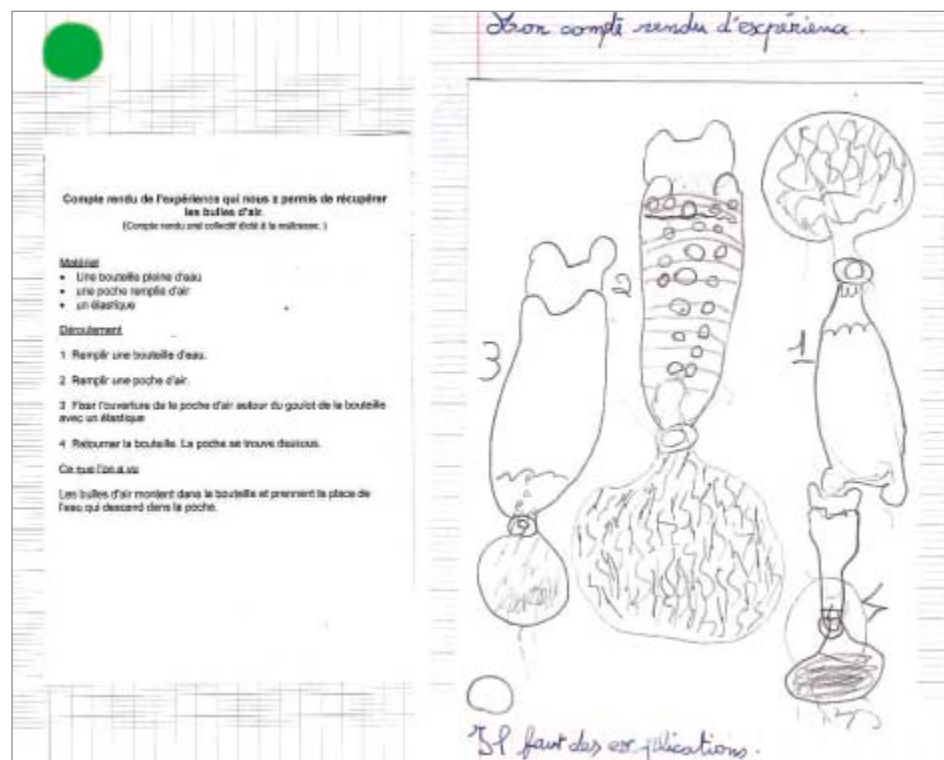 Compte rendu de l'expérience qui nous a permis de récupérer
les bulles d'air.
(Compte rendu oral collectif dicté à la maîtresse.)
Matériel
• Une bouteille pleine d'eau
• une poche remplie d'air
• un élastique
Déroulement
1 Remplir une bouteille d'eau.
2 Remplir une poche d'air.
3 Fixer l'ouverture de la poche d'air autour du goulot de la bouteille
avec un élastique
4 Retourner la bouteille. La poche se trouve dessous.
Ce que l'on a vu
Les bulles d'air montent dans la bouteille et prennent la place de
l'eau qui descend dans la poche.
Mon compte rendu d'expérience.
1
2
3
4
Il faut des explications.